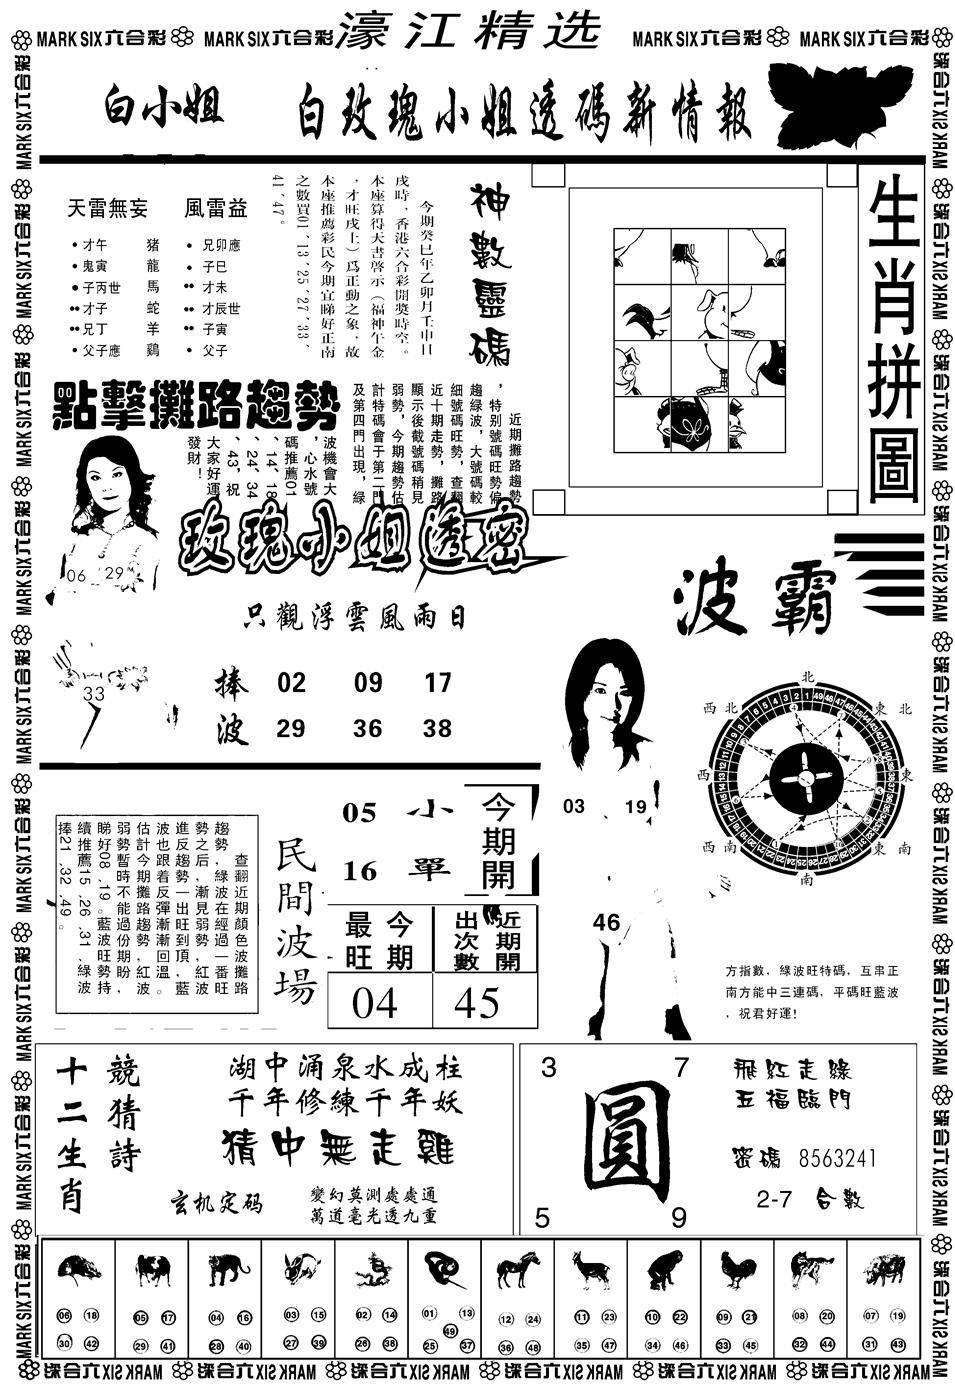 濠江精选
MARK SIX六合彩 MARK SIX六合彩 MARK SIX六合彩 MARK SIX六合彩
白小姐 白玫瑰小姐透碼新情報
天雷無妄 風雷益
才午 猪 兄卯應
鬼寅 龍 子巳
子丙世 馬 才未
才子 蛇 才辰世
兄丁 羊 子寅
父子應 鷄 父子
神數靈碼
今期癸巳年乙卯月壬申日
戌時，香港六合彩開獎時空。
本座算得天書啓示（福神午金
，才旺戌上）爲正動之象，故
本座推薦彩民今期宜睇好正南
之數買01、13、25、27、33、
41、47。
生肖拼圖
點擊攤路趨勢
近期攤路趨勢
，特别號碼旺勢偏
趨綠波，大號碼較
細號碼旺勢，查翻
近十期走勢，攤路
顯示後截號碼稍見
弱勢，今期趨勢估
計特碼會于第二門
及第四門出現，綠
波機會大
，心水號
碼推薦01
、14、18
、24、34
、43，祝
大家好運
發財！
玫瑰小姐透密
06 29
33
只觀浮雲風雨日
捧 02 09 17
波 29 36 38
波霸
北
西北 東北
西 東
西南 東南
南
03 19
46
方指數，綠波旺特碼，互串正
南方能中三連碼，平碼旺藍波
，祝君好運！
查翻近期顔色波攤路
趨勢，綠波在經過一番旺
勢之后，漸見弱勢，紅波
進反趨勢一出旺到頂，藍
波也跟着反彈漸漸回溫。
估計今期攤路趨勢，紅波
弱勢暫時不能過份期盼，
睇好08、19。藍波旺勢持
續推薦15、26、31、綠波
捧21、32、49。
民間波場
05 小
16 單
今期開
最旺 今期
出次數 近期開
04 45
十二生肖
競猜詩
湖中涌泉水成柱
千年修練千年妖
猜中無走雞
玄机定码
變幻莫測處處通
萬道毫光透九重
3 7
圓
5 9
飛紅走綠
五福臨門
密碼 8563241
2-7 合數
06 18 30 42
05 17 29 41
04 16 28 40
03 15 27 39
02 14 26 38
01 13 49 25 37
12 24 36 48
11 23 35 47
10 22 34 46
09 21 33 45
08 20 32 44
07 19 31 43